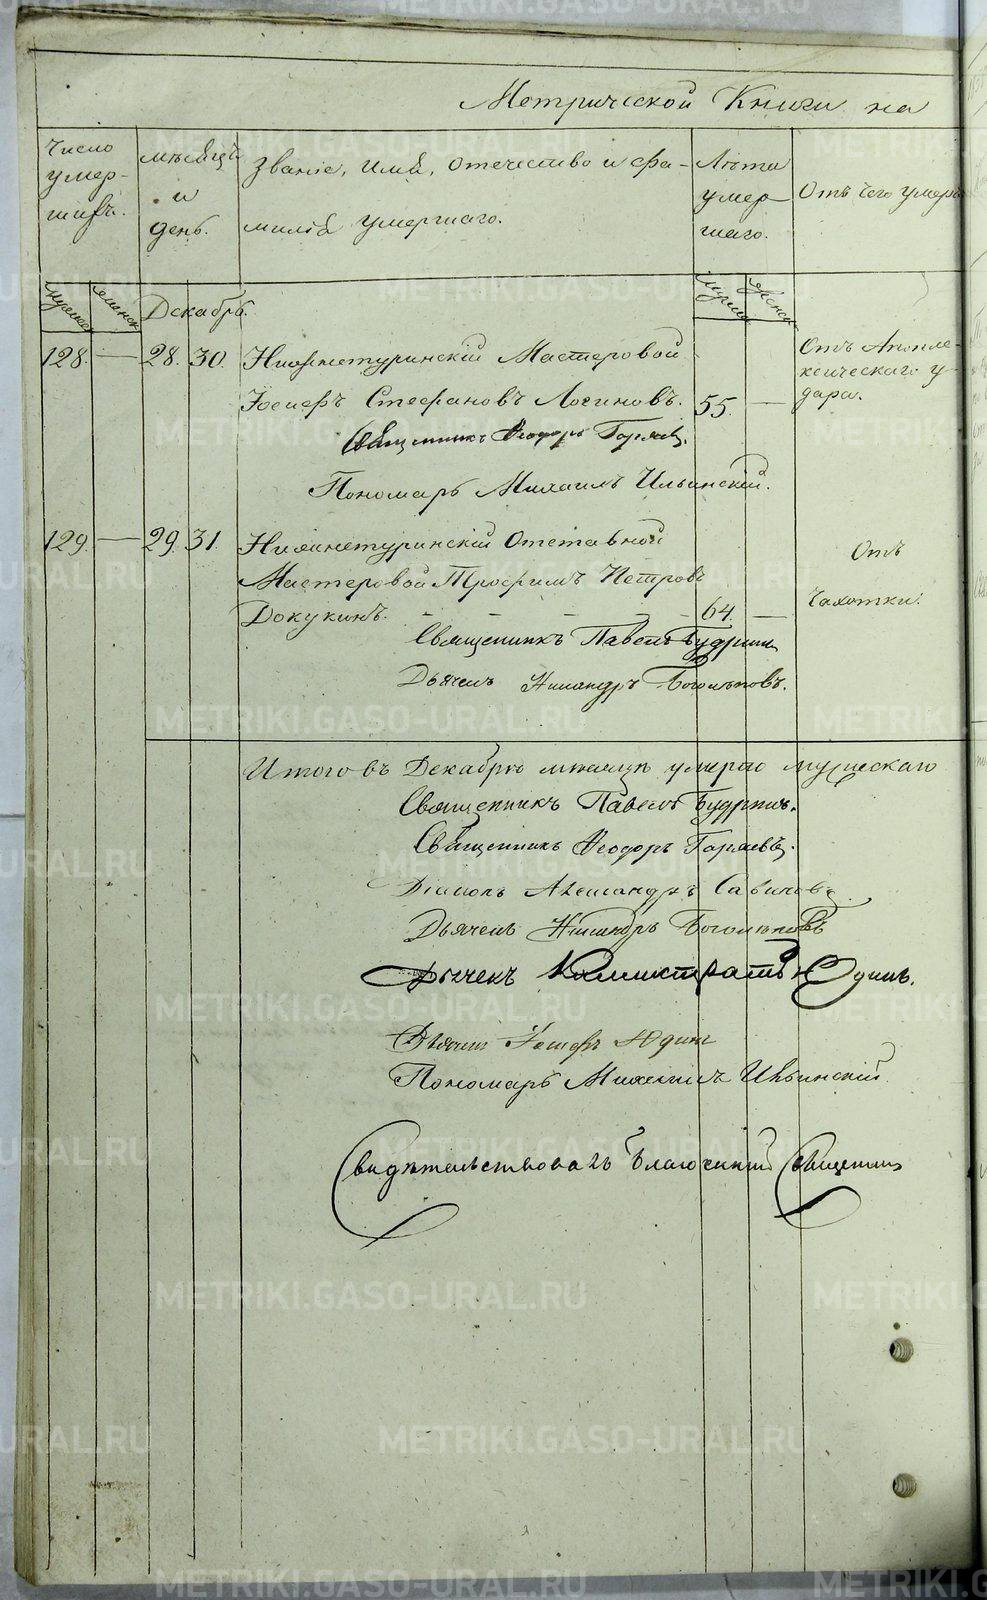 Метрической Книги на
Число умер- шихъ.
мѣсяцъ и день.
Званіе, имя, отечество и фа-
милія умершаго.
Лѣта умер- шаго.
Отъ чего умеръ
мужеск
женск
Декабрь.
мужеск
женск
128. — 28. 30. Нижнетуринскій Мастеровой
Іосифъ Стефановъ Логиновъ. 55. —
Отъ Апопле-
ксическаго у-
дара.
Священникъ Ѳеодоръ Горяевъ.
Пономарь Михаилъ Ильинскій.
129. — 29. 31. Нижнетуринскій Отставной
Мастеровой Трофимъ Петровъ
Докукинъ. — — — — — 64. —
Отъ
чахотки.
Священникъ Павелъ Будринъ
Дьячекъ Никандръ Боголѣповъ.
Итого въ Декабрѣ мѣсяцѣ умерло мужескаго
Священникъ Павелъ Будринъ.
Священникъ Ѳеодоръ Горяевъ.
Діаконъ Александръ Савиновъ
Дьячекъ Никандръ Боголѣповъ
Дьячекъ Каллистратъ Юдинъ.
Дьячекъ Іосифъ Юдинъ
Пономарь Михаилъ Ильинскій
Свидѣтельствовалъ Благочинный Священникъ
METRIKI.GASO-URAL.RU